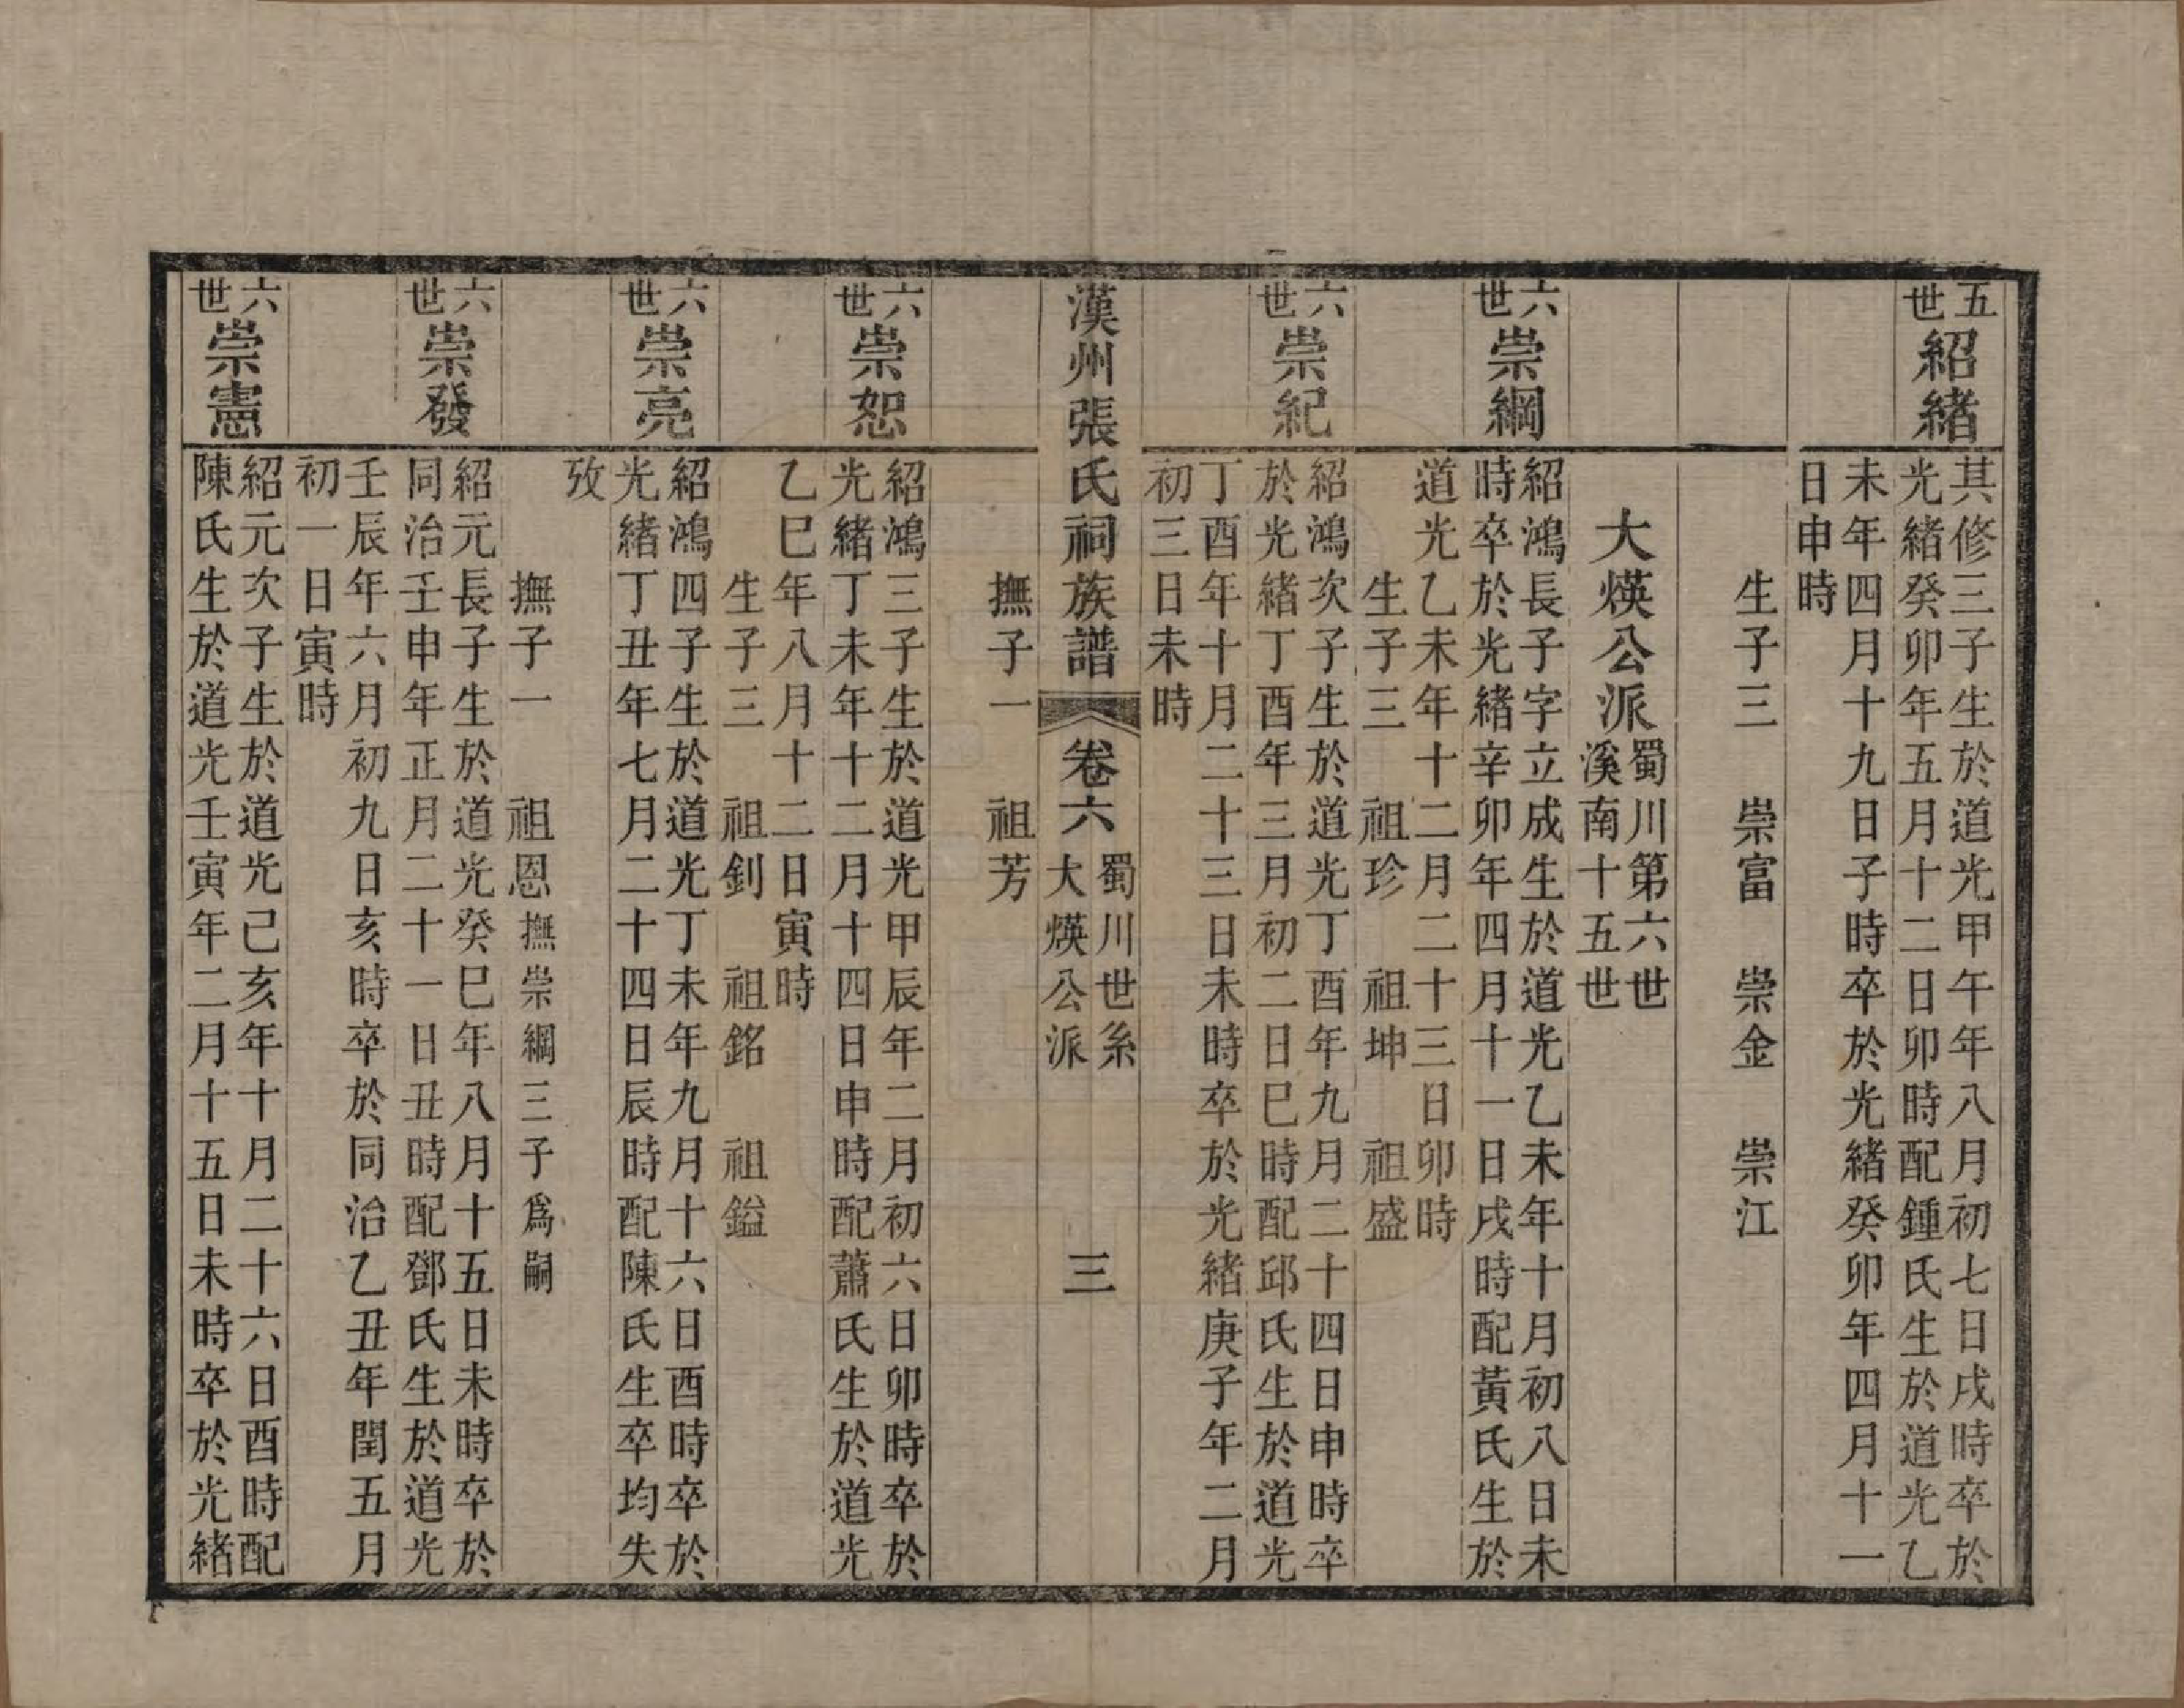 五世
紹緒
其修三子生於道光甲午年八月初七日戌時卒於
光緒癸卯年五月十二日卯時配鍾氏生於道光乙
未年四月十九日子時卒於光緒癸卯年四月十一
日申時
生子三 崇富 崇金 崇江
大煐公派
蜀川第六世
溪南十五世
六世
崇綱
紹鴻長子字立成生於道光乙未年十月初八日未
時卒於光緒辛卯年四月十一日戌時配黃氏生於
道光乙未年十二月二十三日卯時
生子三 祖珍 祖坤 祖盛
六世
崇紀
紹鴻次子生於道光丁酉年九月二十四日申時卒
於光緒丁酉年三月初二日巳時配邱氏生於道光
丁酉年十月二十三日未時卒於光緒庚子年二月
初三日未時
漢州張氏祠族譜
卷六
蜀川世系
大煐公派
三
撫子一 祖芳
六世
崇恕
紹鴻三子生於道光甲辰年二月初六日卯時卒於
光緒丁未年十二月十四日申時配蕭氏生於道光
乙巳年八月十二日寅時
生子三 祖釗 祖銘 祖鎰
六世
崇亮
紹鴻四子生於道光丁未年九月十六日酉時卒於
光緒丁丑年七月二十四日辰時配陳氏生卒均失
攷
撫子一 祖恩撫崇綱三子爲嗣
六世
崇發
紹元長子生於道光癸巳年八月十五日未時卒於
同治壬申年正月二十一日丑時配鄧氏生於道光
壬辰年六月初九日亥時卒於同治乙丑年閏五月
初一日寅時
六世
崇憲
紹元次子生於道光己亥年十月二十六日酉時配
陳氏生於道光壬寅年二月十五日未時卒於光緒